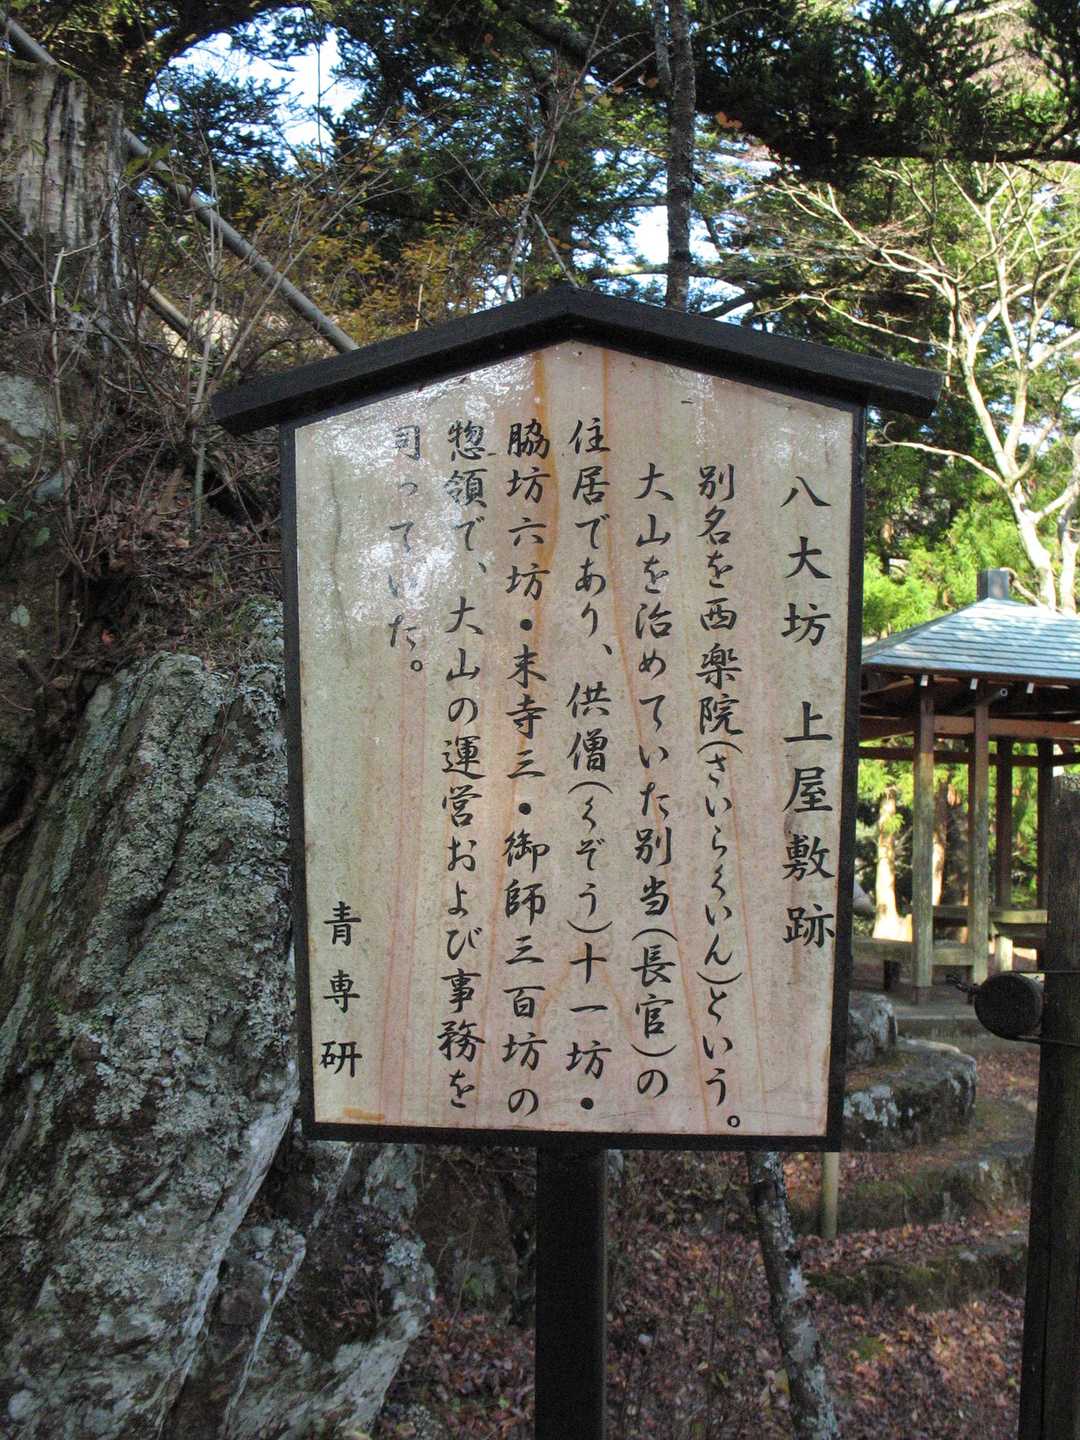 八大坊 上屋敷跡
別名を西楽院(さいらくいん)という。
大山を治めていた別当(長官)の
住居であり、供僧(くぞう)十一坊・
脇坊六坊・末寺三・御師三百坊の
惣領で、大山の運営および事務を
司っていた。
青専研